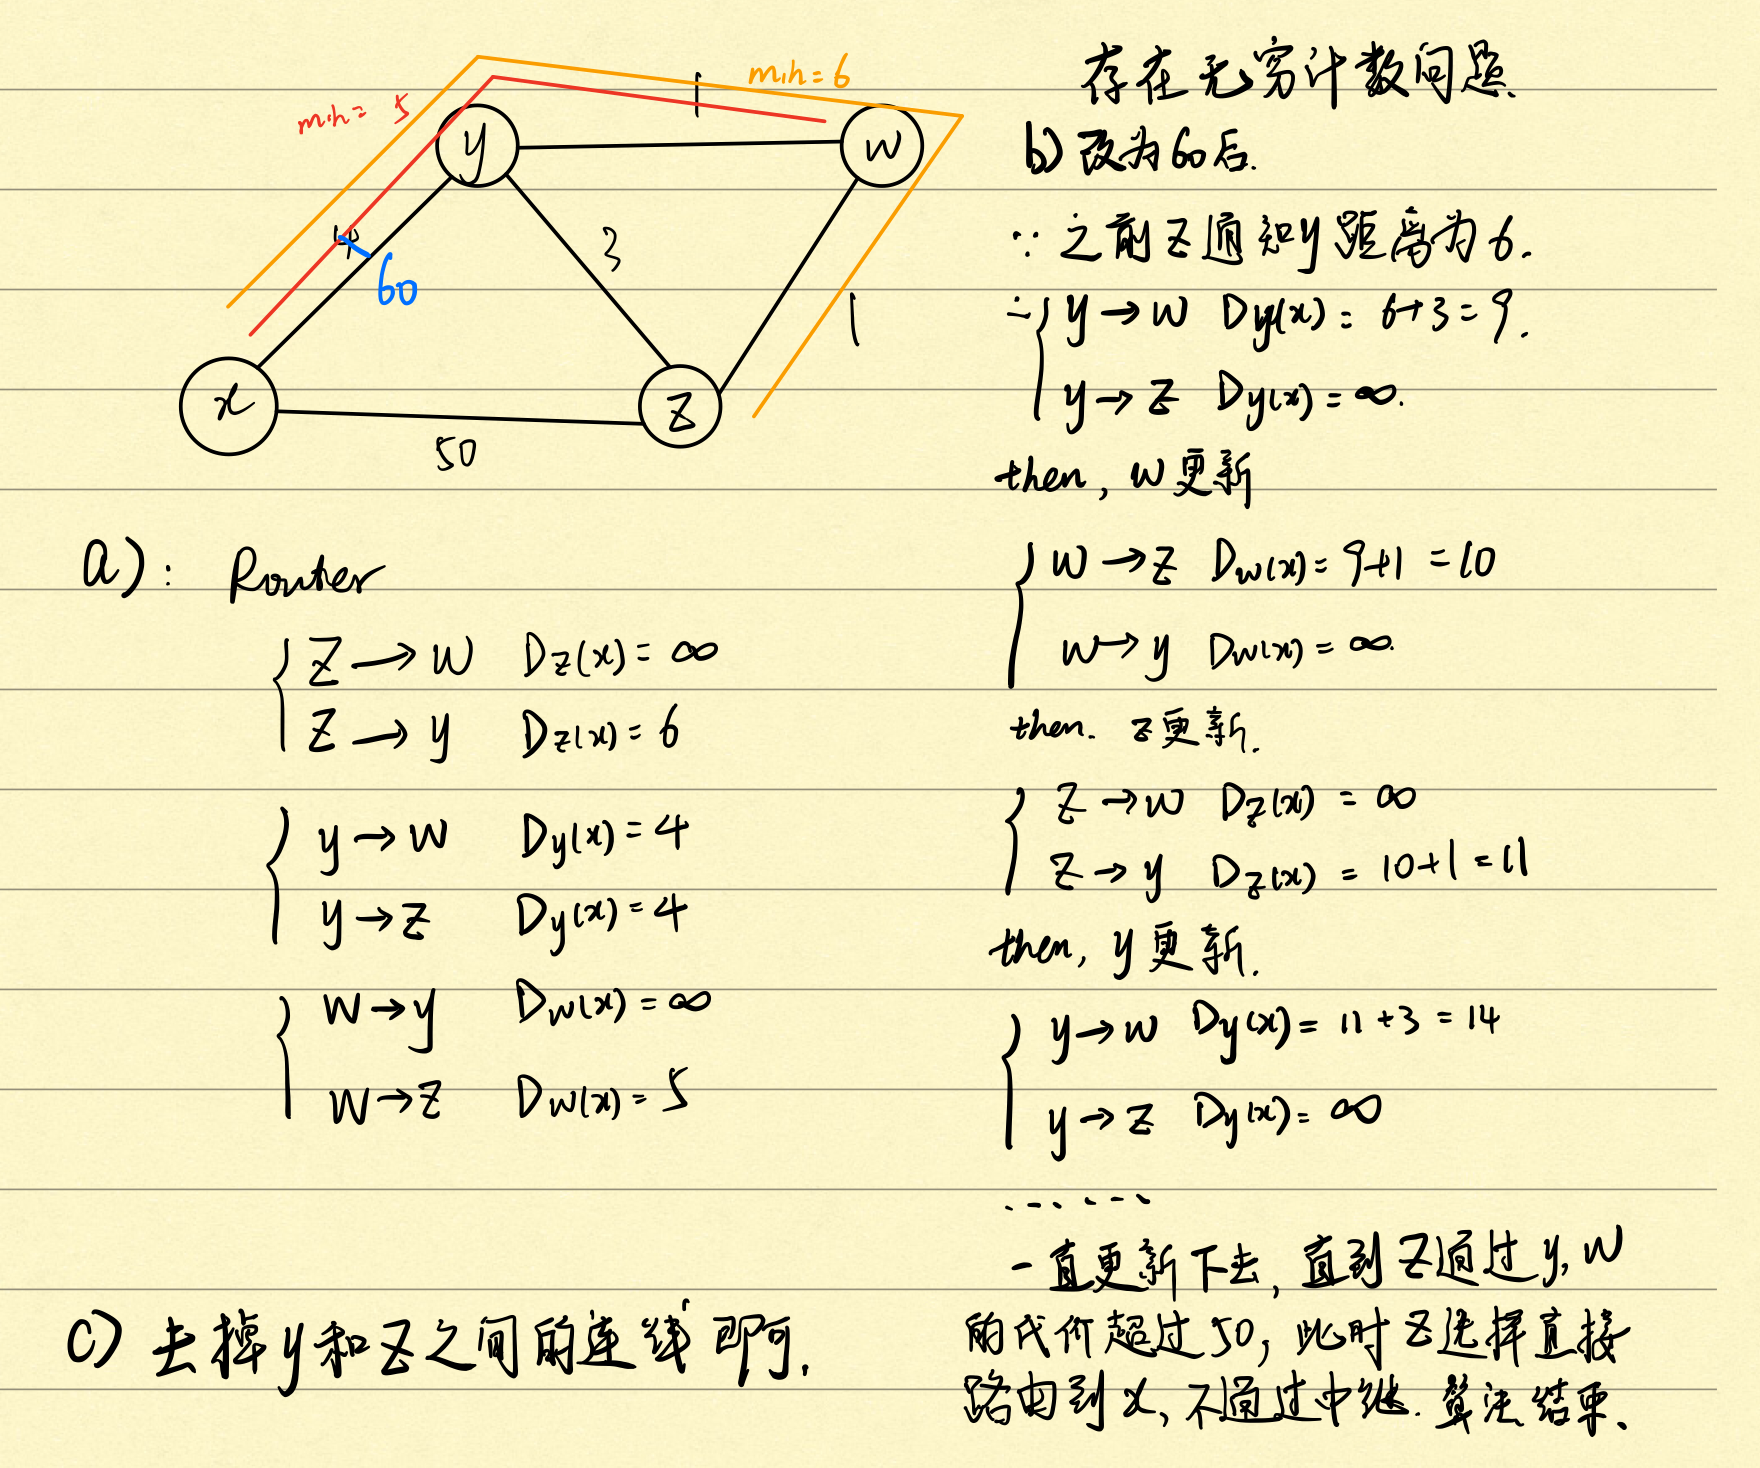 min = 5
min = 6
1
y
w
4
60
3
1
x
z
50
a): Router
z → w Dz(x) = ∞
z → y Dz(x) = 6
y → w Dy(x) = 4
y → z Dy(x) = 4
w → y Dw(x) = ∞
w → z Dw(x) = 5
c) 去掉y和z之间的连线即可.
存在无穷计数问题.
b) 改为60后.
∵ 之前z通知y距离为6.
∴ y → w Dy(x) = 6+3=9.
y → z Dy(x) = ∞.
then, w更新
w → z Dw(x) = 9+1 = 10
w → y Dw(x) = ∞.
then. z更新.
z → w Dz(x) = ∞
z → y Dz(x) = 10+1 = 11
then, y更新.
y → w Dy(x) = 11+3 = 14
y → z Dy(x) = ∞
......
一直更新下去, 直到z通过y,w
的代价超过50, 此时z选择直接
路由到x, 不通过中继. 算法结束.